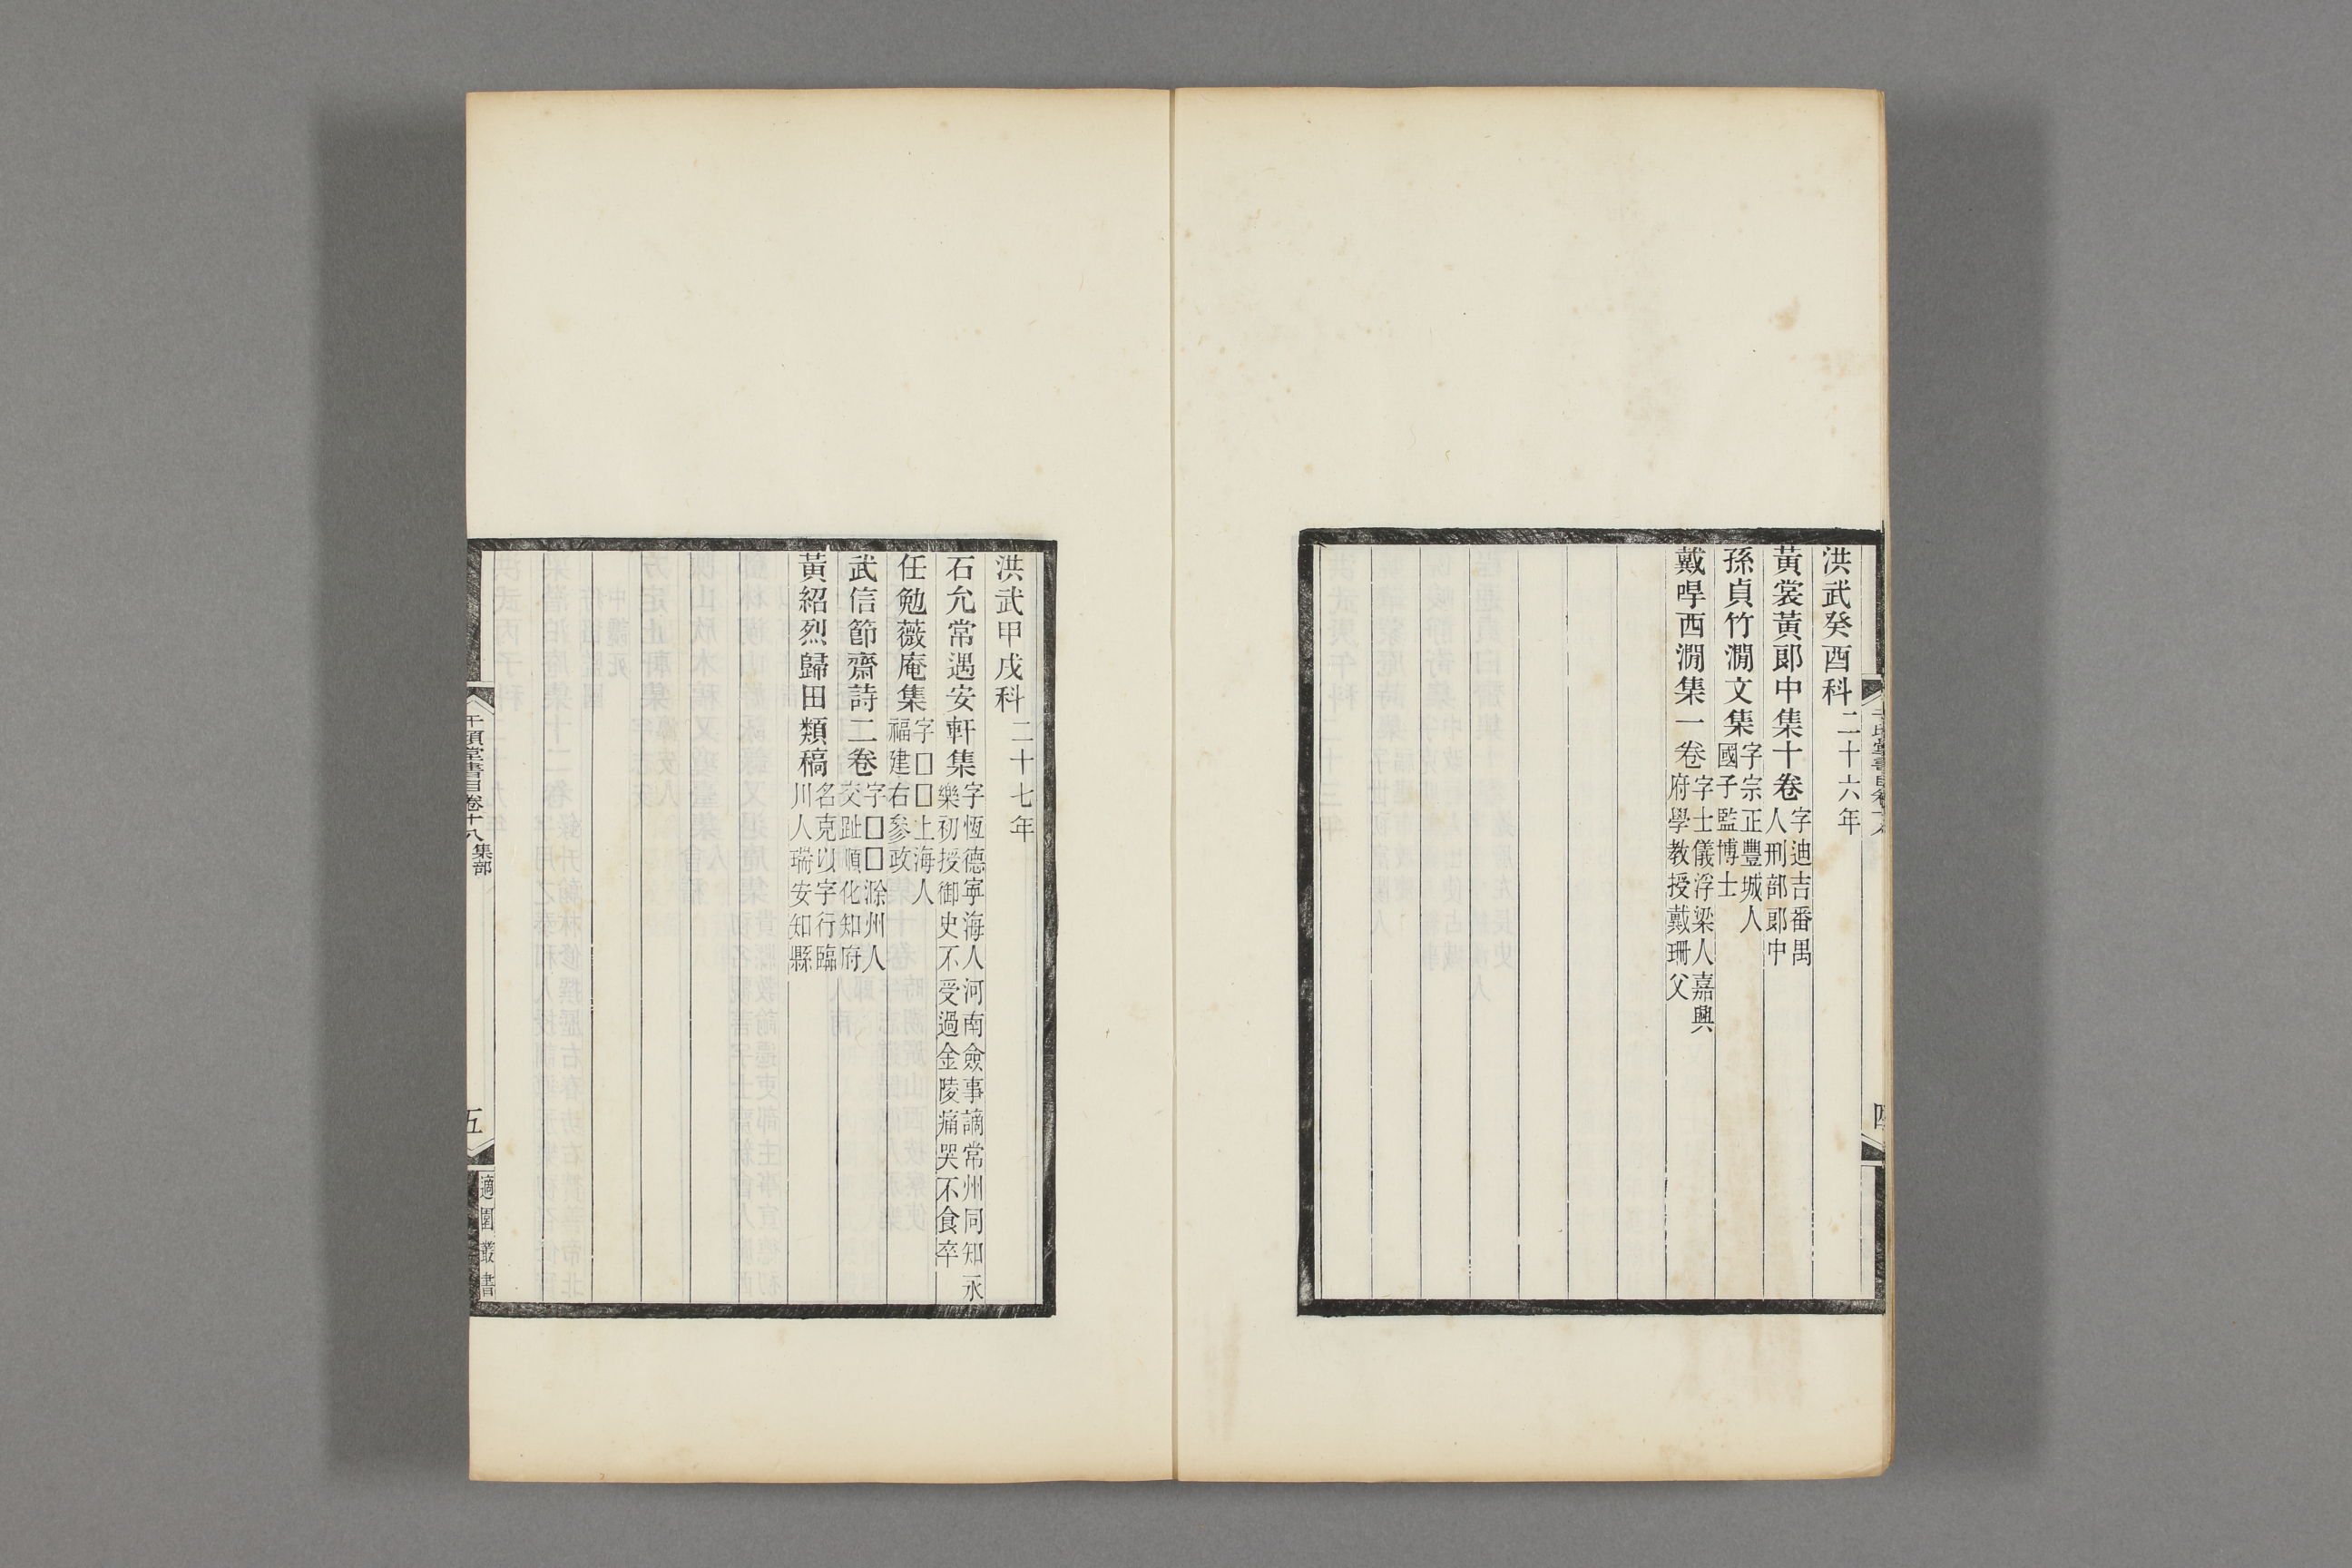 洪武癸酉科二十六年
黃裳黃郞中集十卷字迪吉番禺人刑部郞中
孫貞竹澗文集字宗正豐城人國子監博士
戴㫶西澗集一卷字士儀浮梁人嘉興府學教授戴珊父
洪武甲戌科二十七年
石允常遇安軒集字恆德寧海人河南僉事謫常州同知永樂初授御史不受過金陵痛哭不食卒
任勉薇庵集字□□上海人福建右參政
武信節齋詩二卷字□□滁州人交趾順化知府
黃紹烈歸田類稿名克以字行臨川人瑞安知縣
千頃堂書目卷十八集部
五
適園叢書